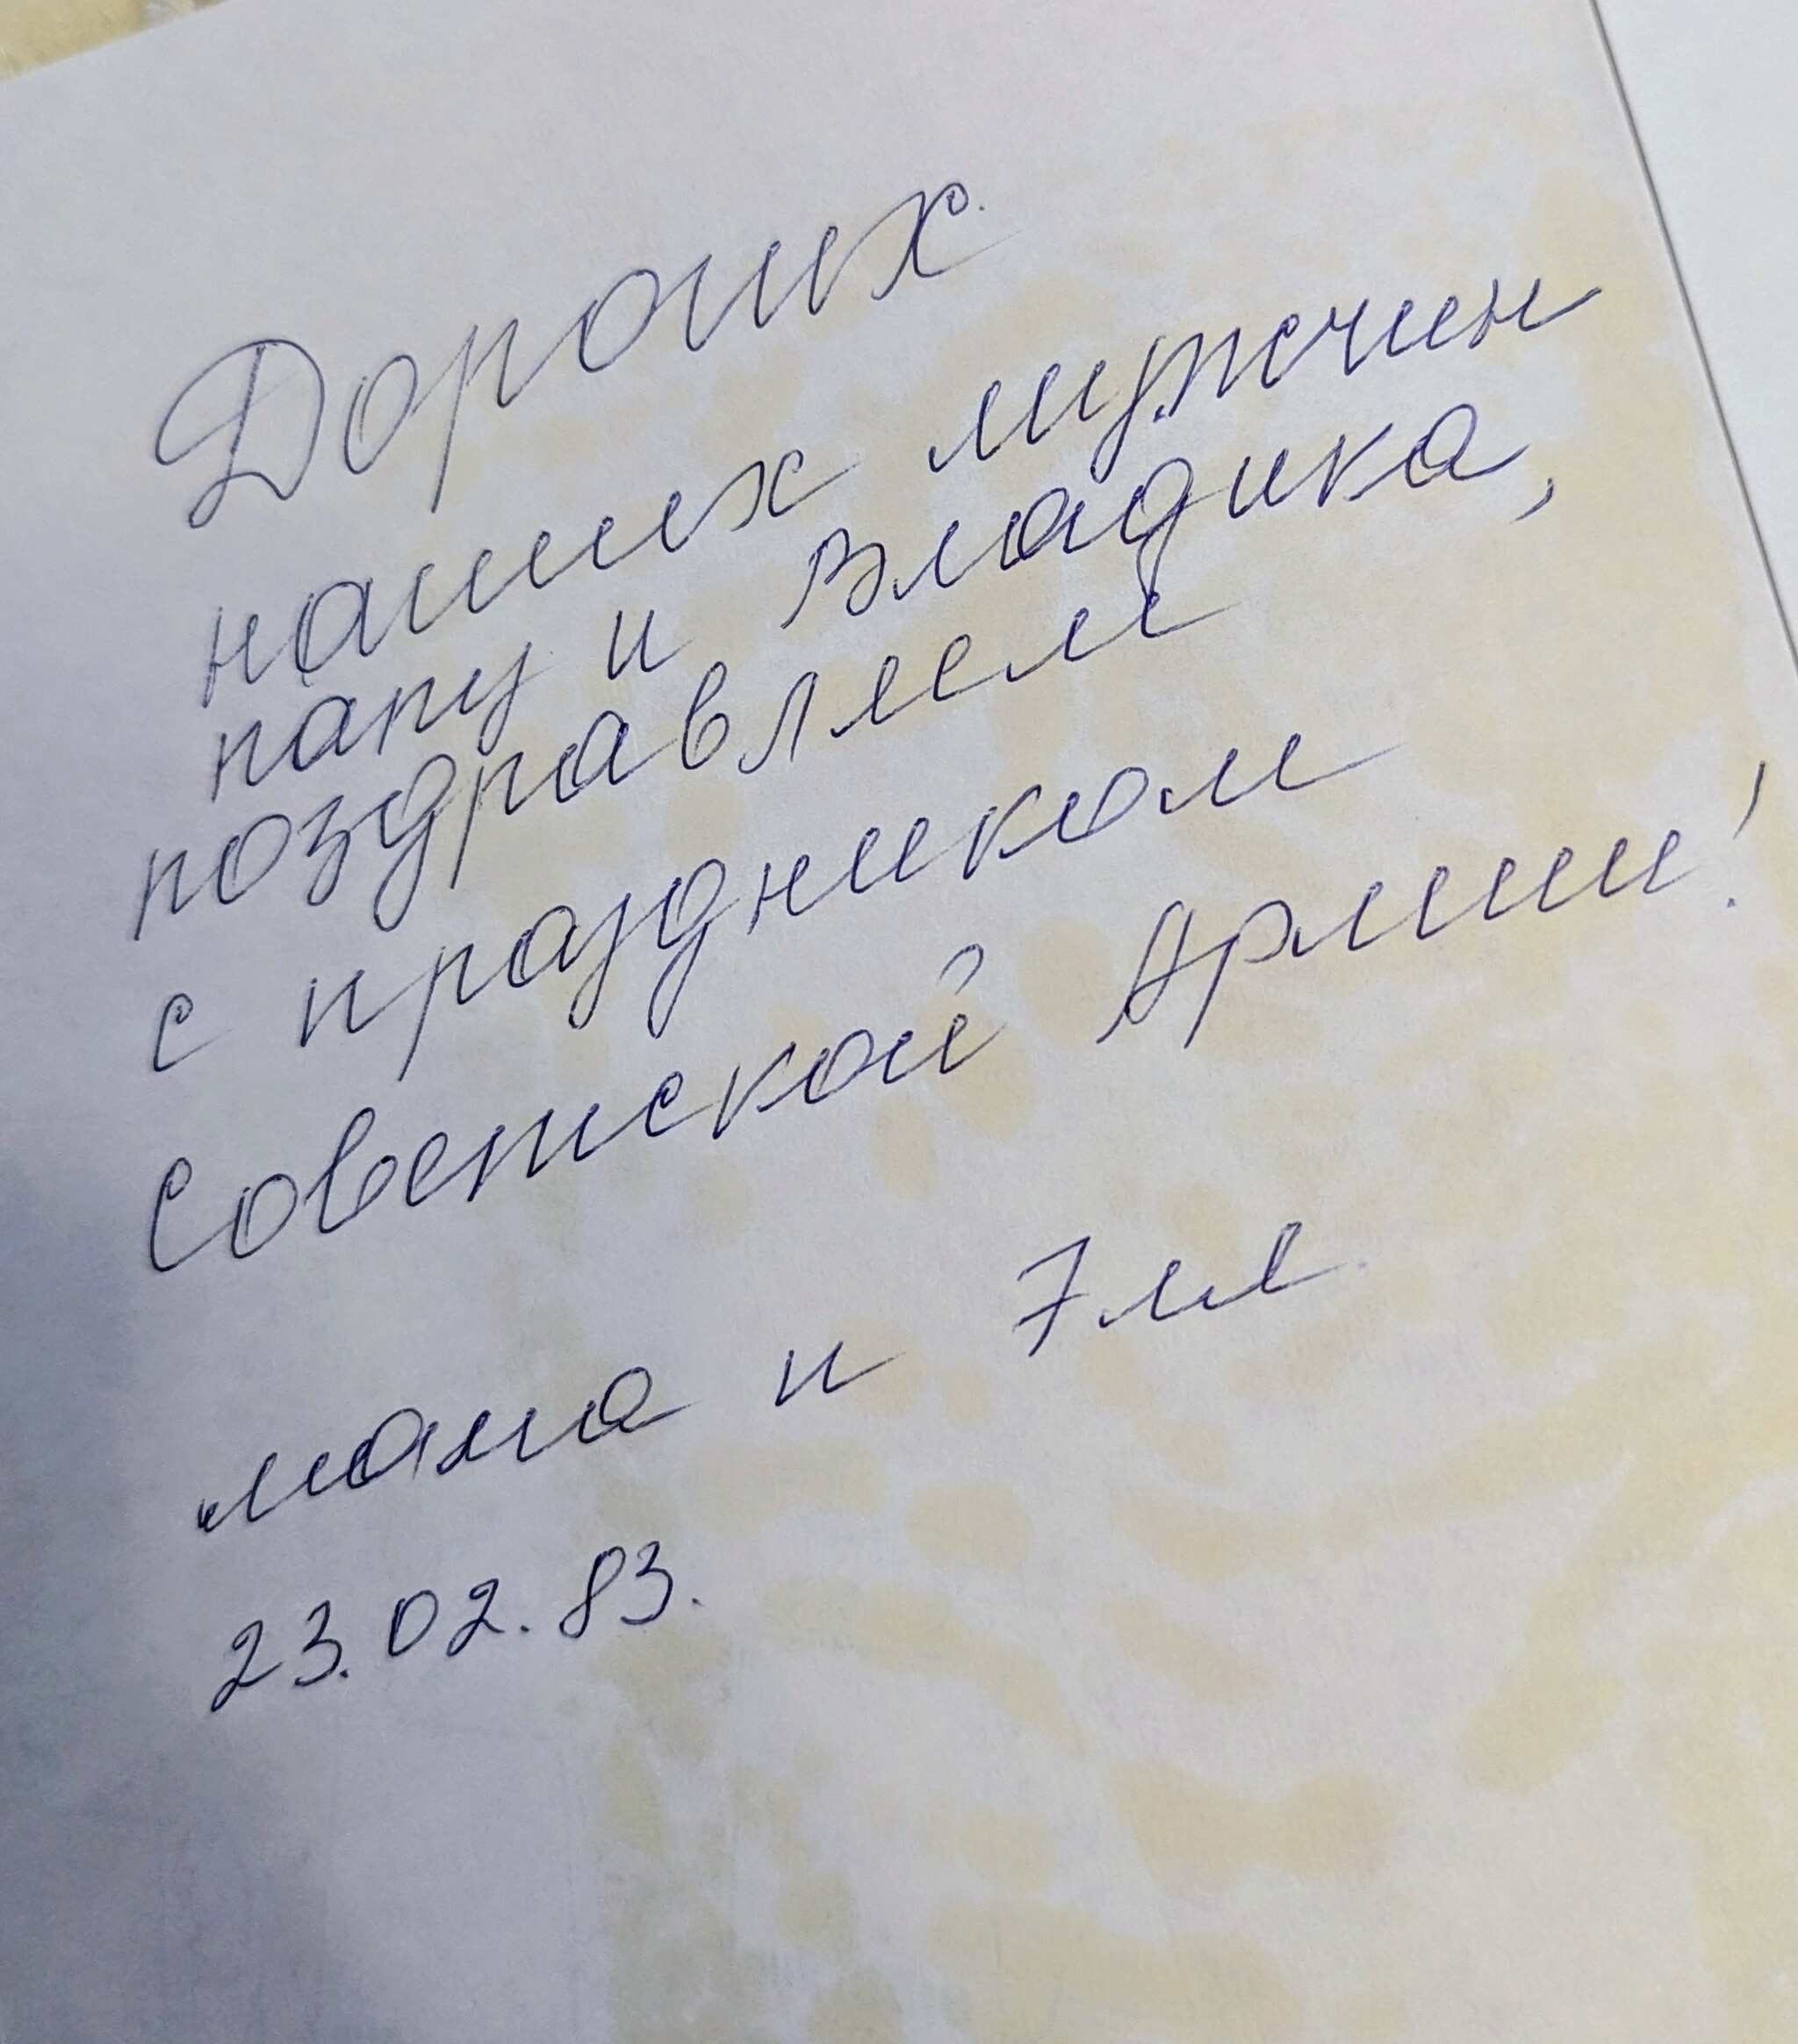 Дорогих
наших мужчин
папу и Владика,
поздравляем
с праздником
Советской Армии!
мама и Эля
23.02.83.